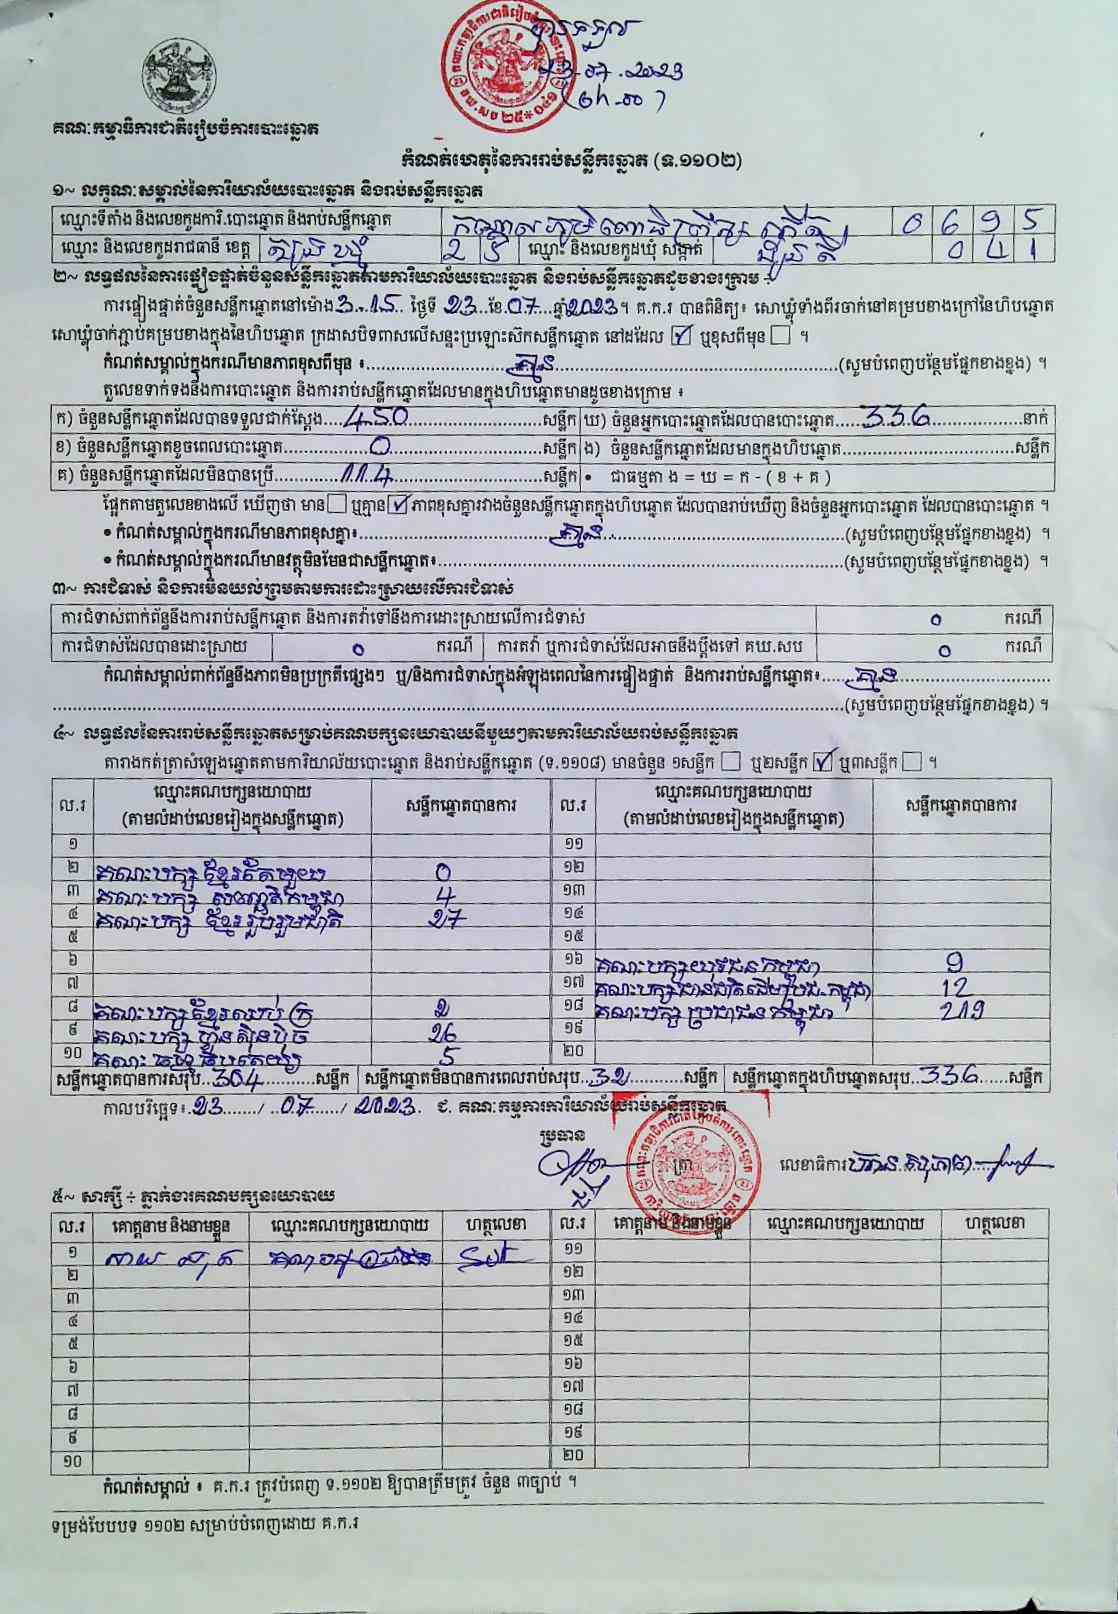 បានទទួល
23-07-2023
គណៈកម្មាធិការជាតិរៀបចំការបោះឆ្នោត
កំណត់ហេតុនៃការរាប់សន្លឹកឆ្នោត (ទ.១១០២)
១~ លក្ខណៈសម្គាល់នៃការិយាល័យបោះឆ្នោត និងរាប់សន្លឹកឆ្នោត
ឈ្មោះទីតាំង និងលេខកូដការិ.បោះឆ្នោត និងរាប់សន្លឹកឆ្នោត 0 6 9 5
ឈ្មោះ និងលេខកូដរាជធានី ខេត្ត ត្បូងឃ្មុំ 2 5 ឈ្មោះ និងលេខកូដឃុំ សង្កាត់ 0 4 1
២~ លទ្ធផលនៃការផ្ទៀងផ្ទាត់ចំនួនសន្លឹកឆ្នោតតាមការិយាល័យបោះឆ្នោត និងរាប់សន្លឹកឆ្នោតដូចខាងក្រោម ÷
ការផ្ទៀងផ្ទាត់ចំនួនសន្លឹកឆ្នោតនៅម៉ោង 3:15 ថ្ងៃទី 23 ខែ 07 ឆ្នាំ 2023 ។ គ.ក.រ បានពិនិត្យ៖ សោឃ្លុំទាំងពីរចាក់នៅគម្របខាងក្រៅនៃហិបឆ្នោត
សោឃ្លុំចាក់ភ្ជាប់គម្របខាងក្នុងនៃហិបឆ្នោត ក្រដាសបិទពាសលើសន្ទះប្រឡោះស៊កសន្លឹកឆ្នោត នៅដដែល ☑ ឬខុសពីមុន ☐ ។
កំណត់សម្គាល់ក្នុងករណីមានភាពខុសពីមុន ៖ គ្មាន (សូមបំពេញបន្ថែមផ្នែកខាងខ្នង) ។
តួលេខទាក់ទងនឹងការបោះឆ្នោត និងការរាប់សន្លឹកឆ្នោតដែលមានក្នុងហិបឆ្នោតមានដូចខាងក្រោម ៖
ក) ចំនួនសន្លឹកឆ្នោតដែលបានទទួលជាក់ស្តែង 450 សន្លឹក ឃ) ចំនួនអ្នកបោះឆ្នោតដែលបានបោះឆ្នោត 336 នាក់
ខ) ចំនួនសន្លឹកឆ្នោតខូចពេលបោះឆ្នោត 0 សន្លឹក ង) ចំនួនសន្លឹកឆ្នោតដែលមានក្នុងហិបឆ្នោត សន្លឹក
គ) ចំនួនសន្លឹកឆ្នោតដែលមិនបានប្រើ 114 សន្លឹក • ជាធម្មតា ង = ឃ = ក - ( ខ + គ )
ផ្អែកតាមតួលេខខាងលើ ឃើញថា មាន ☐ ឬគ្មាន ☑ ភាពខុសគ្នារវាងចំនួនសន្លឹកឆ្នោតក្នុងហិបឆ្នោត ដែលបានរាប់ឃើញ និងចំនួនអ្នកបោះឆ្នោត ដែលបានបោះឆ្នោត ។
• កំណត់សម្គាល់ក្នុងករណីមានភាពខុសគ្នា៖ គ្មាន (សូមបំពេញបន្ថែមផ្នែកខាងខ្នង) ។
• កំណត់សម្គាល់ក្នុងករណីមានវត្ថុមិនមែនជាសន្លឹកឆ្នោត៖ (សូមបំពេញបន្ថែមផ្នែកខាងខ្នង) ។
៣~ ការជំទាស់ និងការមិនយល់ព្រមតាមការដោះស្រាយលើការជំទាស់
ការជំទាស់ពាក់ព័ន្ធនឹងការរាប់សន្លឹកឆ្នោត និងការតវ៉ាទៅនឹងការដោះស្រាយលើការជំទាស់ 0 ករណី
ការជំទាស់ដែលបានដោះស្រាយ 0 ករណី ការតវ៉ា ឬការជំទាស់ដែលអាចនឹងប្តឹងទៅ គឃ.សប 0 ករណី
កំណត់សម្គាល់ពាក់ព័ន្ធនឹងភាពមិនប្រក្រតីផ្សេងៗ ឬ/និងការជំទាស់ក្នុងអំឡុងពេលនៃការផ្ទៀងផ្ទាត់ និងការរាប់សន្លឹកឆ្នោត៖ គ្មាន
(សូមបំពេញបន្ថែមផ្នែកខាងខ្នង) ។
៤~ លទ្ធផលនៃការរាប់សន្លឹកឆ្នោតសម្រាប់គណបក្សនយោបាយនីមួយៗតាមការិយាល័យរាប់សន្លឹកឆ្នោត
តារាងកត់ត្រាសំឡេងឆ្នោតតាមការិយាល័យបោះឆ្នោត និងរាប់សន្លឹកឆ្នោត (ទ.១១០៨) មានចំនួន ១សន្លឹក ☐ ឬ២សន្លឹក ☑ ឬ៣សន្លឹក ☐ ។
ល.រ ឈ្មោះគណបក្សនយោបាយ (តាមលំដាប់លេខរៀងក្នុងសន្លឹកឆ្នោត) សន្លឹកឆ្នោតបានការ ល.រ ឈ្មោះគណបក្សនយោបាយ (តាមលំដាប់លេខរៀងក្នុងសន្លឹកឆ្នោត) សន្លឹកឆ្នោតបានការ
១ ១១
២ គណបក្ស ខ្មែរតែមួយ 0 ១២
៣ គណបក្ស សញ្ជាតិកម្ពុជា 4 ១៣
៤ គណបក្ស ខ្មែររួបរួមជាតិ 27 ១៤
៥ ១៥
៦ ១៦ គណបក្សយុវជនកម្ពុជា 9
៧ ១៧ 12
៨ គណបក្ស ខ្មែរឈប់ក្រ 2 ១៨ គណបក្ស ប្រជាជនកម្ពុជា 219
៩ គណបក្ស ហ៊្វុនស៊ិនប៉ិច 26 ១៩
១០ 5 ២០
សន្លឹកឆ្នោតបានការសរុប 304 សន្លឹក សន្លឹកឆ្នោតមិនបានការពេលរាប់សរុប 32 សន្លឹក សន្លឹកឆ្នោតក្នុងហិបឆ្នោតសរុប 336 សន្លឹក
កាលបរិច្ឆេទ៖ 23 / 07 / 2023 ជ. គណៈកម្មការការិយាល័យរាប់សន្លឹកឆ្នោត
ប្រធាន
ត្រា លេខាធិការ
៥~ សាក្សី ÷ ភ្នាក់ងារគណបក្សនយោបាយ
ល.រ គោត្តនាម និងនាមខ្លួន ឈ្មោះគណបក្សនយោបាយ ហត្ថលេខា ល.រ គោត្តនាម និងនាមខ្លួន ឈ្មោះគណបក្សនយោបាយ ហត្ថលេខា
១ ១១
២ ១២
៣ ១៣
៤ ១៤
៥ ១៥
៦ ១៦
៧ ១៧
៨ ១៨
៩ ១៩
១០ ២០
កំណត់សម្គាល់ ៖ គ.ក.រ ត្រូវបំពេញ ទ.១១០២ ឱ្យបានត្រឹមត្រូវ ចំនួន ៣ច្បាប់ ។
ទម្រង់បែបបទ ១១០២ សម្រាប់បំពេញដោយ គ.ក.រ